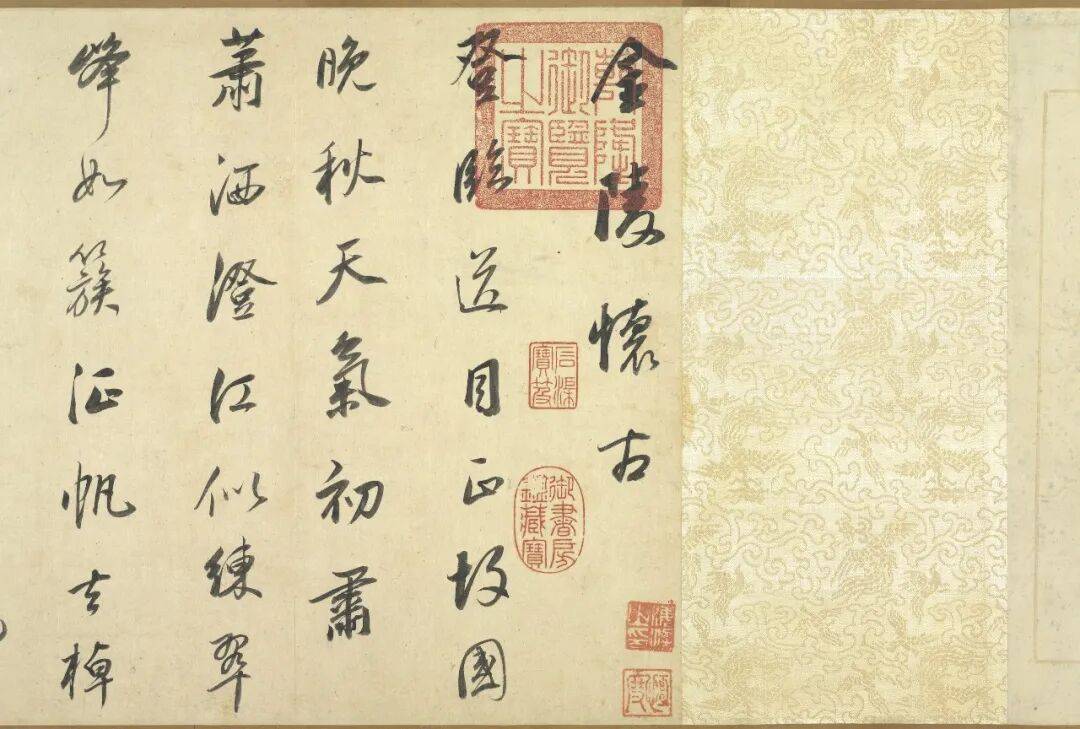 金陵懷古
登臨送目正故國
晚秋天氣初肅
蕭洒澄江似練翠
峰如簇征帆去棹
乾隆御覽之寶
石渠寶笈
御書房鑑藏寶